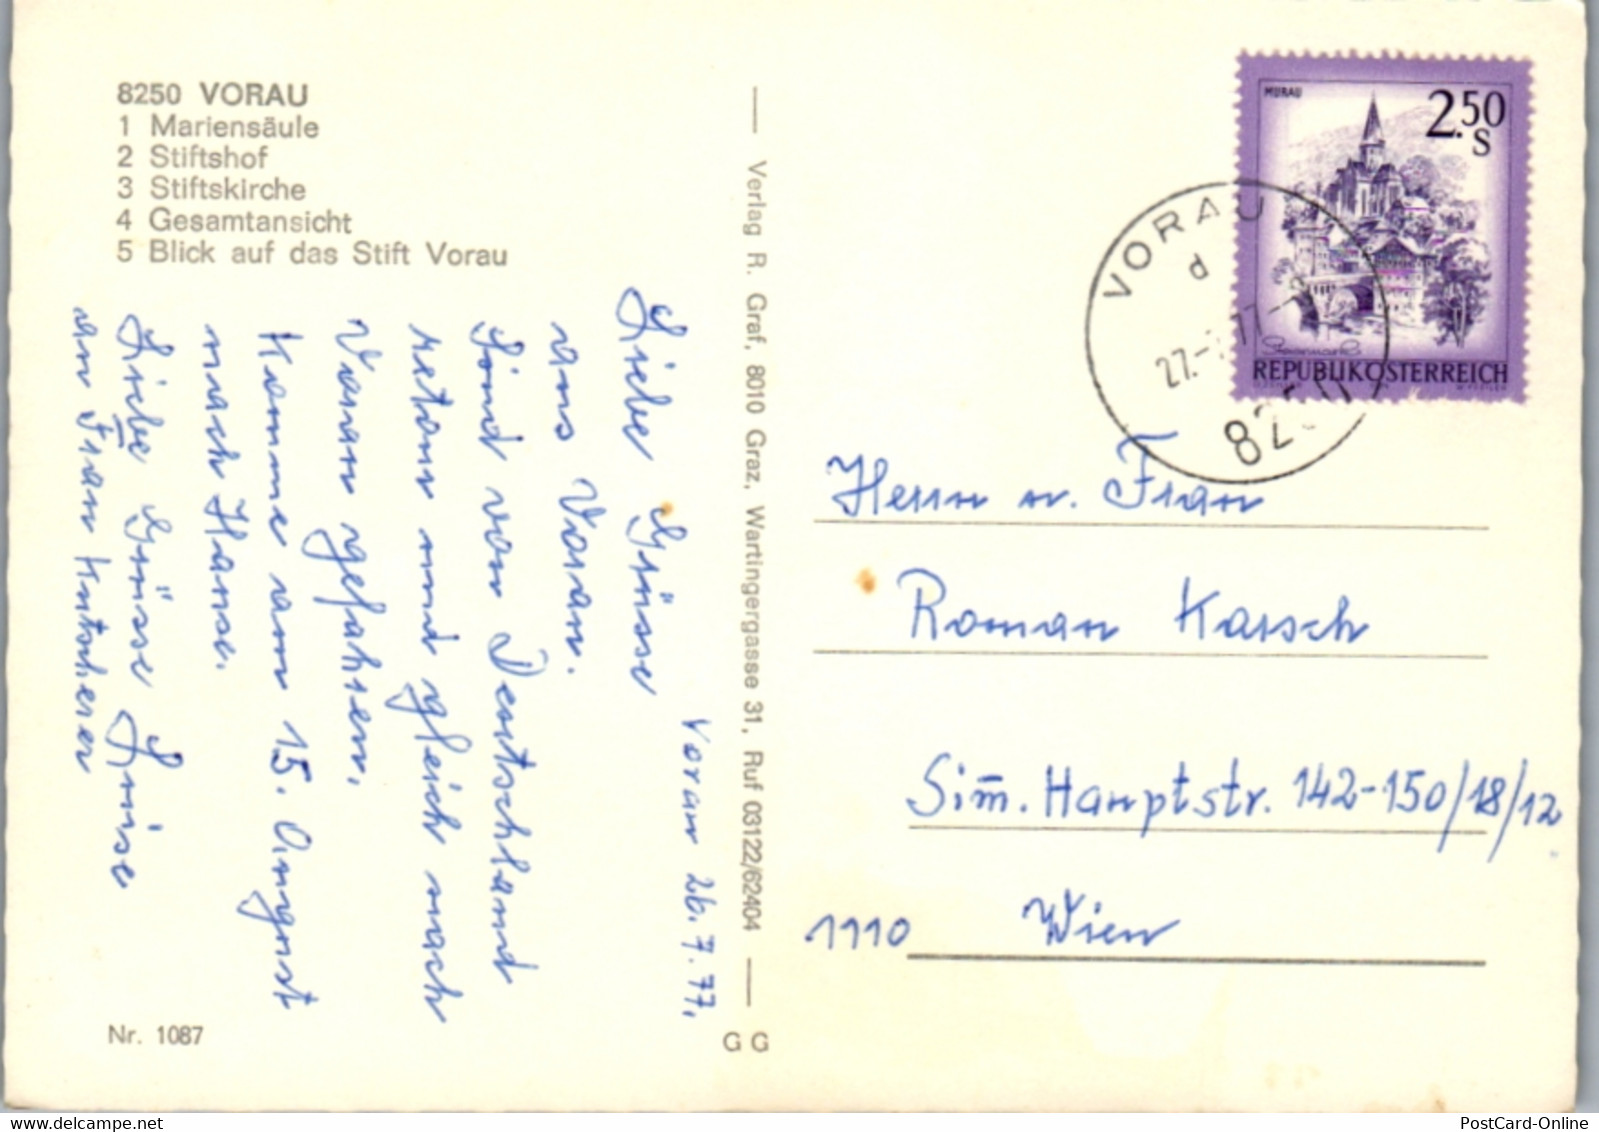 8250 VORAU
1 Mariensäule
2 Stiftshof
3 Stiftskirche
4 Gesamtansicht
5 Blick auf das Stift Vorau
Vorau 26.7.77.
Liebe Grüsse
aus Vorau.
Sind von Deutschland
retour und gleich nach
Vorau gefahren.
Komme am 15. August
nach Hause.
Liebe Grüsse Luise
an Frau Kutscherer
Nr. 1087
Verlag R. Graf, 8010 Graz, Wartingergasse 31, Ruf 03122/62404
G G
MURAU
2.50
S
REPUBLIK ÖSTERREICH
VORAU
d
27.
8250
Herrn u. Frau
Roman Karsch
Sim. Hauptstr. 142-150/18/12
1110 Wien
PostCard-Online